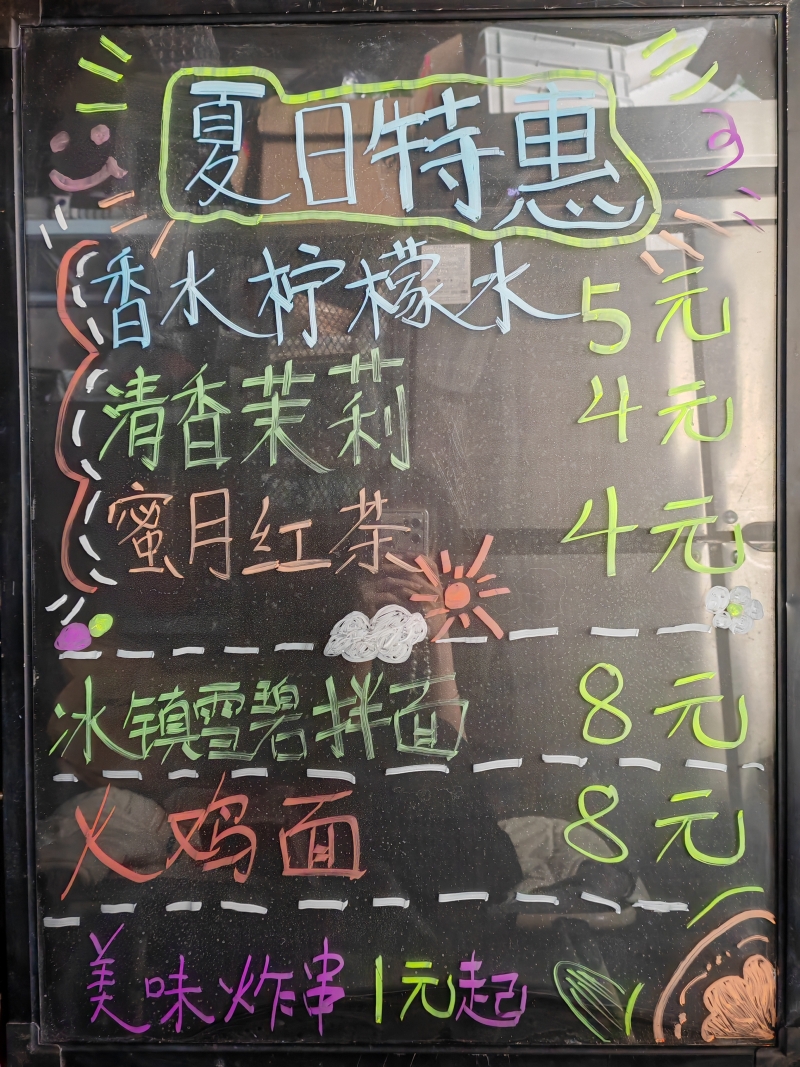 夏日特惠
香水柠檬水 5元
清香茉莉 4元
蜜月红茶 4元
冰镇雪碧拌面 8元
火鸡面 8元
美味炸串 1元起